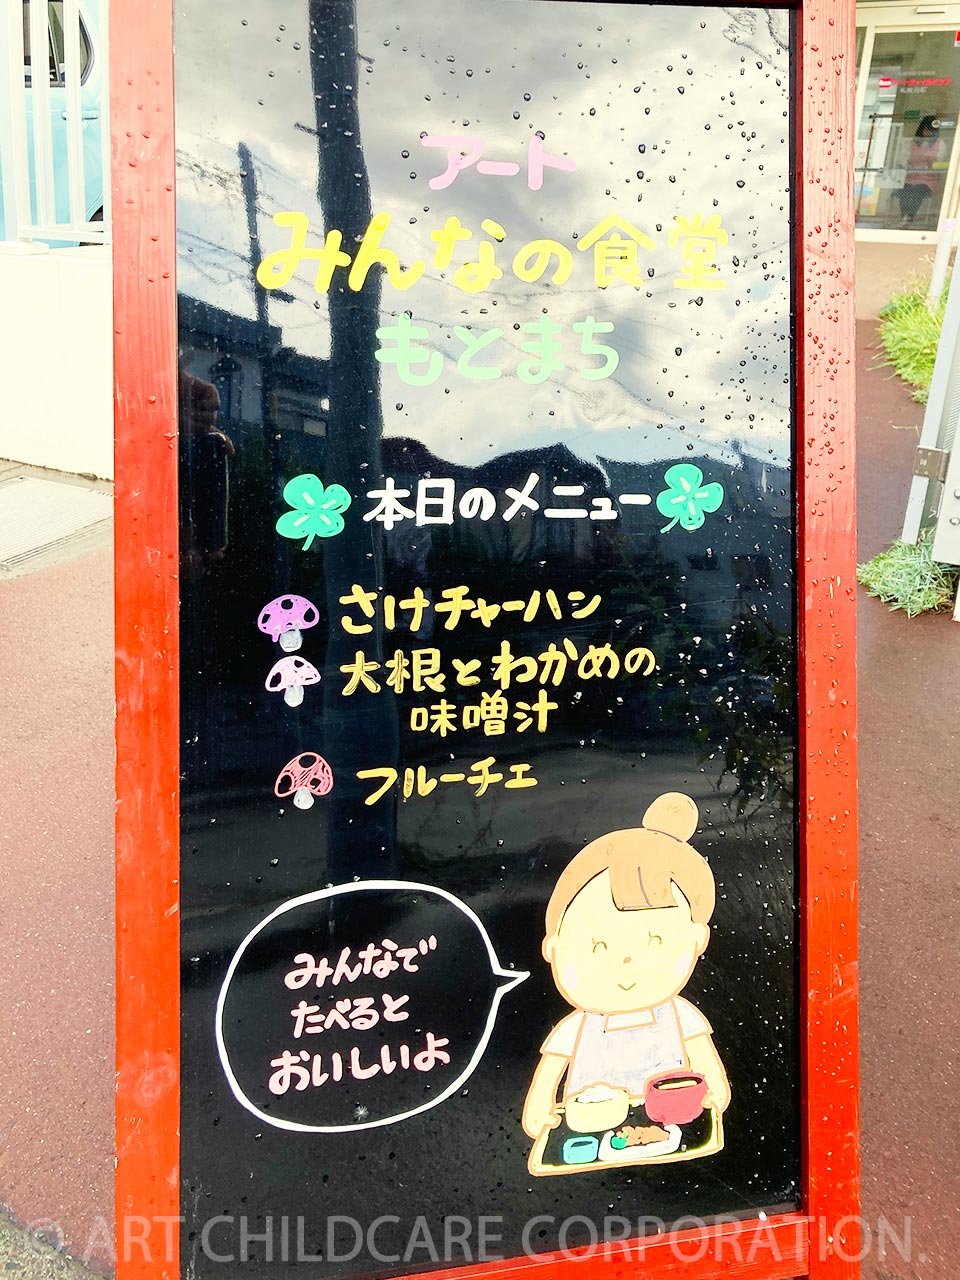 アート
みんなの食堂
もとまち
本日のメニュー
さけチャーハン
大根とわかめの
味噌汁
フルーチェ
みんなで
たべると
おいしいよ
© ART CHILDCARE CORPORATION.